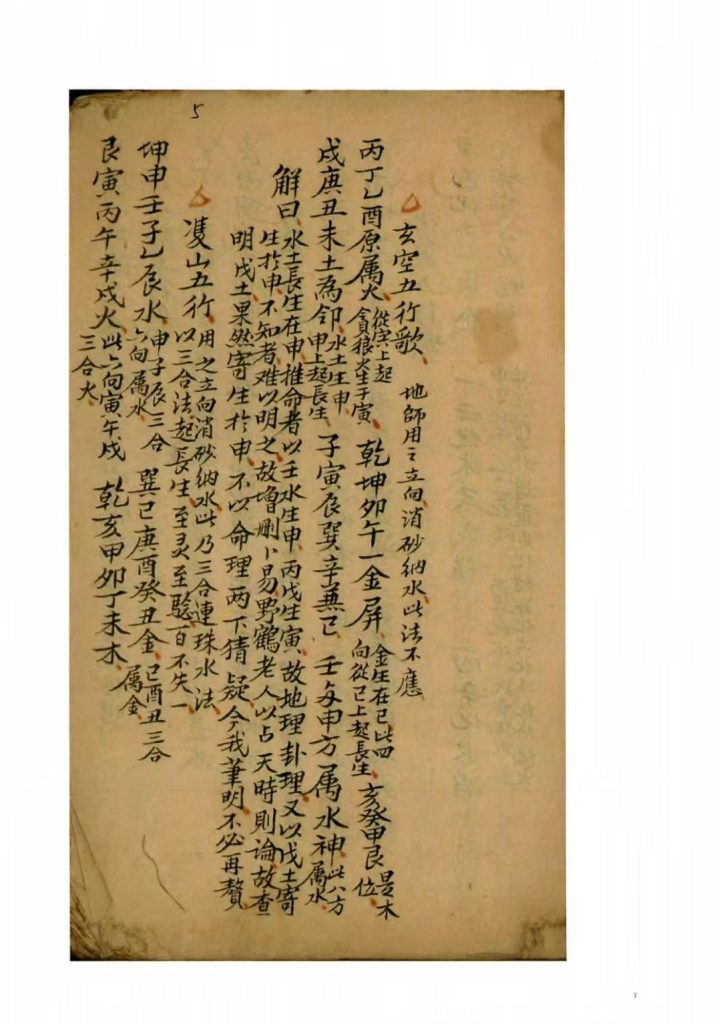 5
△玄空五行歌、地師用之立向消砂納水此法不應
丙丁乙酉原属火、從寅上起貪狼火生于寅、乾坤卯午一金屏、金生在巳此四向從巳上起長生、亥癸甲艮是木位、
戌庚丑未土為邻、水土生申申上起長生、子寅辰巽辛蕪巳、壬与申方属水神、此八方属水
解曰、水土長生在申、推命者以壬水生申、丙戊生寅、故地理卦理、又以戊土寄
生於申、不知者难以明之、故增删卜易野鶴老人以占天時則論、故查
明戊土果然寄生於申、不以命理两下猜疑今我筆明、不必再贅、
△雙山五行、用之立向消砂納水此乃三合連珠水法以三合法起長生至灵至騐百不失一
坤申壬子乙辰水、申子辰三合六向属水、巽巳庚酉癸丑金、巳酉丑三合属金
艮寅丙午辛戌火、此六向寅午戌三合火、乾亥甲卯丁未木、
7